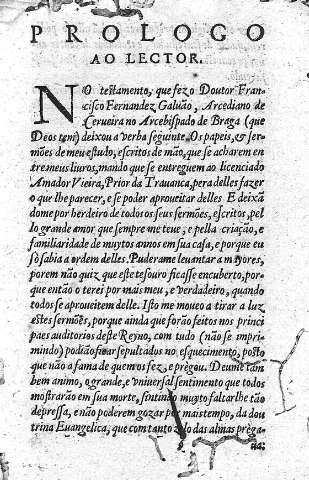 PROLOGO
AO LECTOR.
NO testamento, que fez o Doutor Fran-
cisco Fernandez Galuão, Arcediano de
Cerueira no Arcebispado de Braga (que
Deos tem) deixou a verba seguinte. Os papeis, & ser-
mões de meu estudo, escritos de mão, que se acharem en
tre meus liuros, mando que se entreguem ao licenciado
Amador Vieira, Prior da Trauanca, pera delles fazer
o que lhe parecer, e se poder aproueitar delles E deixã
dome por herdeiro de todos os seus sermões, escritos, pel
lo grande amor que sempre me teue, e pella criação, e
familiaridade de muytos annos em sua casa, e porque eu
só sabia a ordem delles. Puderame leuantar a mayores,
porem não quiz que este tesouro ficasse encuberto, por-
que então o terei por mais meu, e verdadeiro, quando
todos se aproueitem delle. Isto me moueo a tirar a luz
estes sermões, porque ainda que forão feitos nos princi
paes auditorios deste Reyno, com tudo (não se impri-
mindo) podião ficar sepultados no esquecimento, posto
que não a fama de quem os fez, e prègou. Deume tam
bem animo, o grande, e vniuersal sentimento que todos
mostrarão em sua morte, sintindo muyto faltarlhe tão
depressa, e não poderem gozar por mais tempo, da dou
trina Euangelica, que com tanto zelo das almas prèga-
ua: